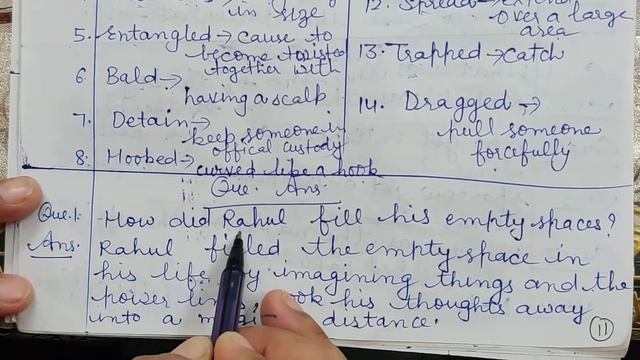 in size
5. Entangled → cause to
become twisted
together with
6. Bald →
having a scalp
7. Detain →
keep someone in
offical custody
8. Hoobed →
curved like a hook
12. Spread →
over a large
area
13. Trapped → catch
14. Dragged →
pull someone
forcefully
Que. Ans.
Que.1. How did Rahul fill his empty spaces?
Ans. Rahul filled the empty space in
his life by imagining things and the
power lines, took his thoughts away
into a distance.
11